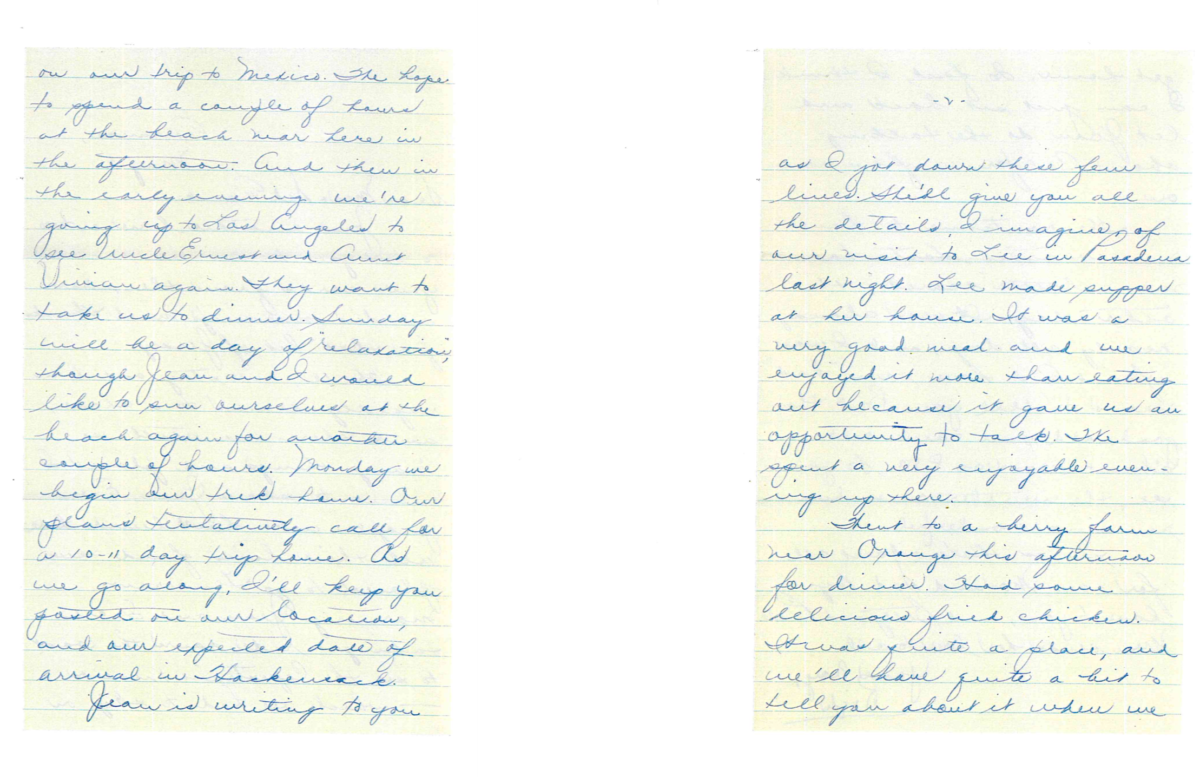 on our trip to Mexico. We hope
to spend a couple of hours
at the beach near here in
the afternoon. And then in
the early evening we're
going up to Los Angeles to
see Uncle Ernest and Aunt
Vivian again. They want to
take us to dinner. Sunday
will be a day of "relaxation",
though Jean and I would
like to sun ourselves at the
beach again for another
couple of hours. Monday we
begin our trek home. Our
plans tentatively call for
a 10-11 day trip home. As
we go along, I'll keep you
posted on our location,
and our expected date of
arrival in Hackensack.
Jean is writing to you
-2-
as I jot down these few
lines. She'll give you all
the details, I imagine, of
our visit to Lee in Pasadena
last night. Lee made supper
at her house. It was a
very good meal and we
enjoyed it more than eating
out because it gave us an
opportunity to talk. We
spent a very enjoyable even-
ing up there.
Went to a berry farm
near Orange this afternoon
for dinner. Had some
delicious fried chicken.
It was quite a place, and
we'll have quite a bit to
tell you about it when we